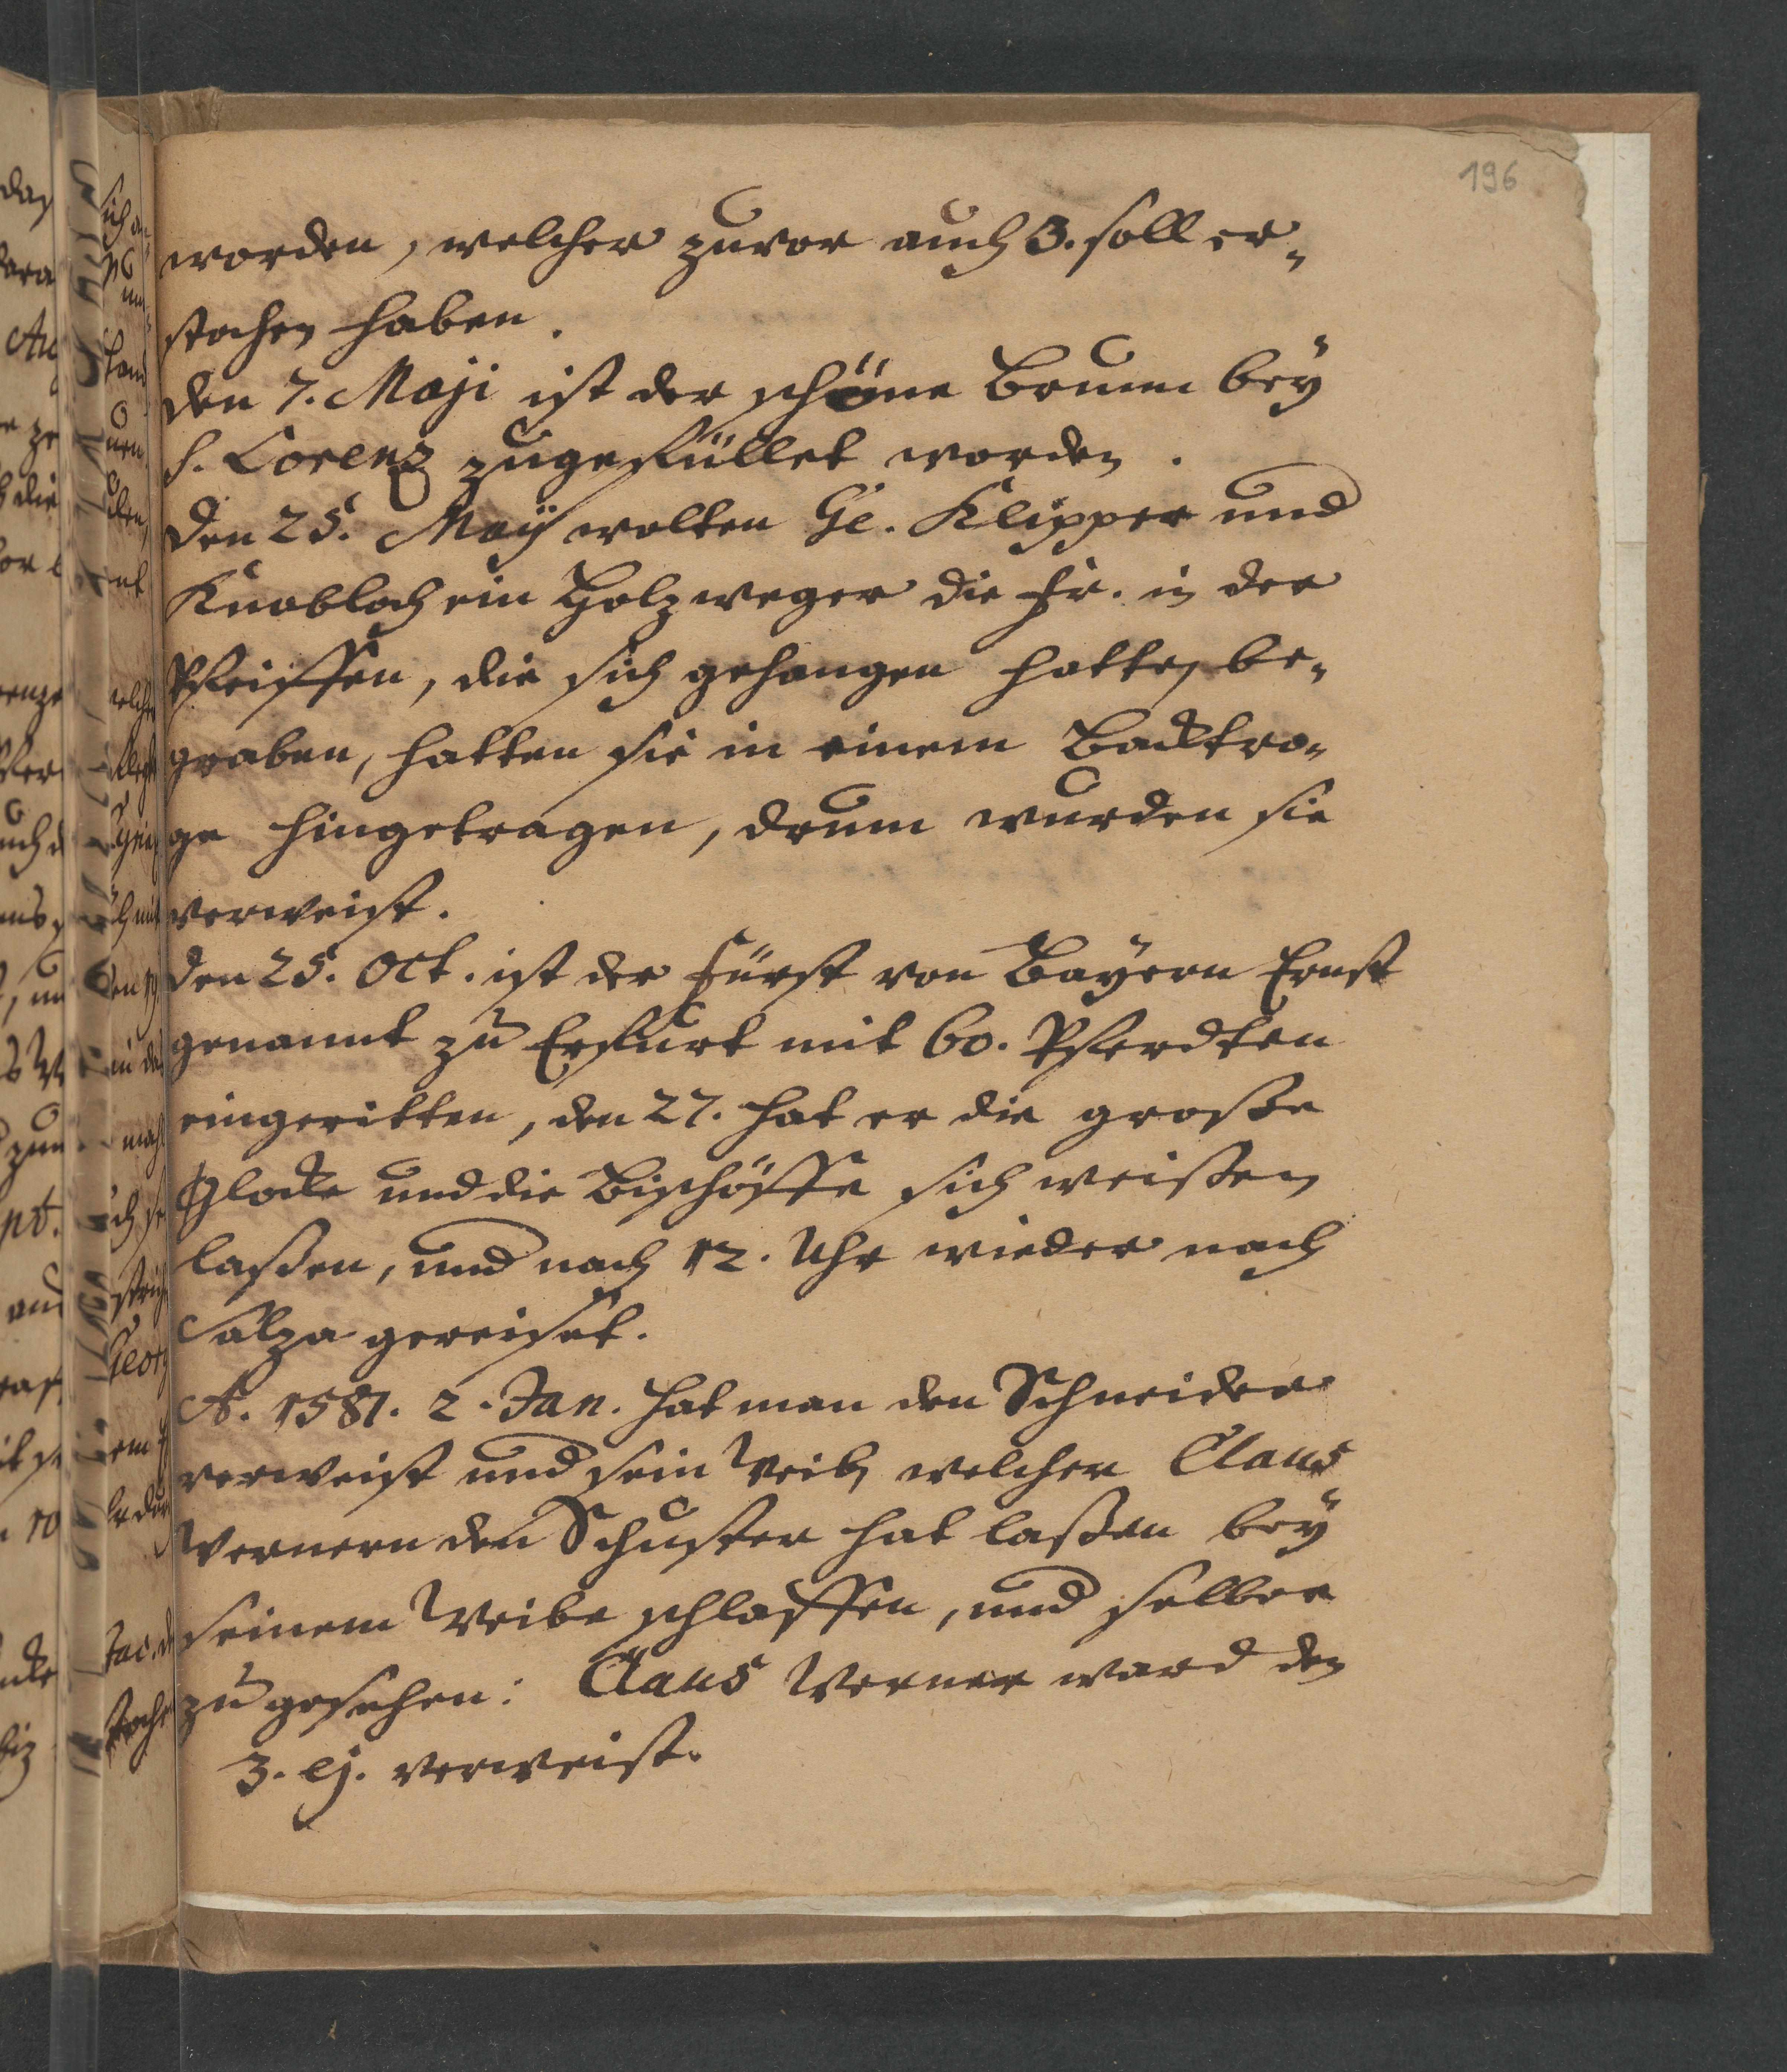 196
worden, welcher zuvor auch 3. soll er„
stochen haben.
den 7. Maji ist der schöne Brunn beÿ
S. Lorenz zugefüllet worden.
den 25. Maÿ wolten Ge. Klipper und
Knobloch ein Holzweger die Fr. in der
Pfeiffen, die sich gehangen hatte, be„
graben, hatten sie in einem Backtro„
ge hingetragen, drum wurden sie
verweist.
den 25. Oct. ist der Fürst von Baÿern Ernst
genannt zu Erfurt mit 60. Pferdten
eingeritten, den 27. hat er die große
Glocke und die Bischöffe sich weißen
laßen, und nach 12. Uhr wieder nach
Salza gereiset.
A. 1581. 2. Jan. hat man den Schneider
verweist und sein Weib, welcher Claus
Wernern den Schuster hat laßen beÿ
seinem Weibe schlaffen, und selber
zu gesehen: Claus Werner ward den
3. ej. verweist.